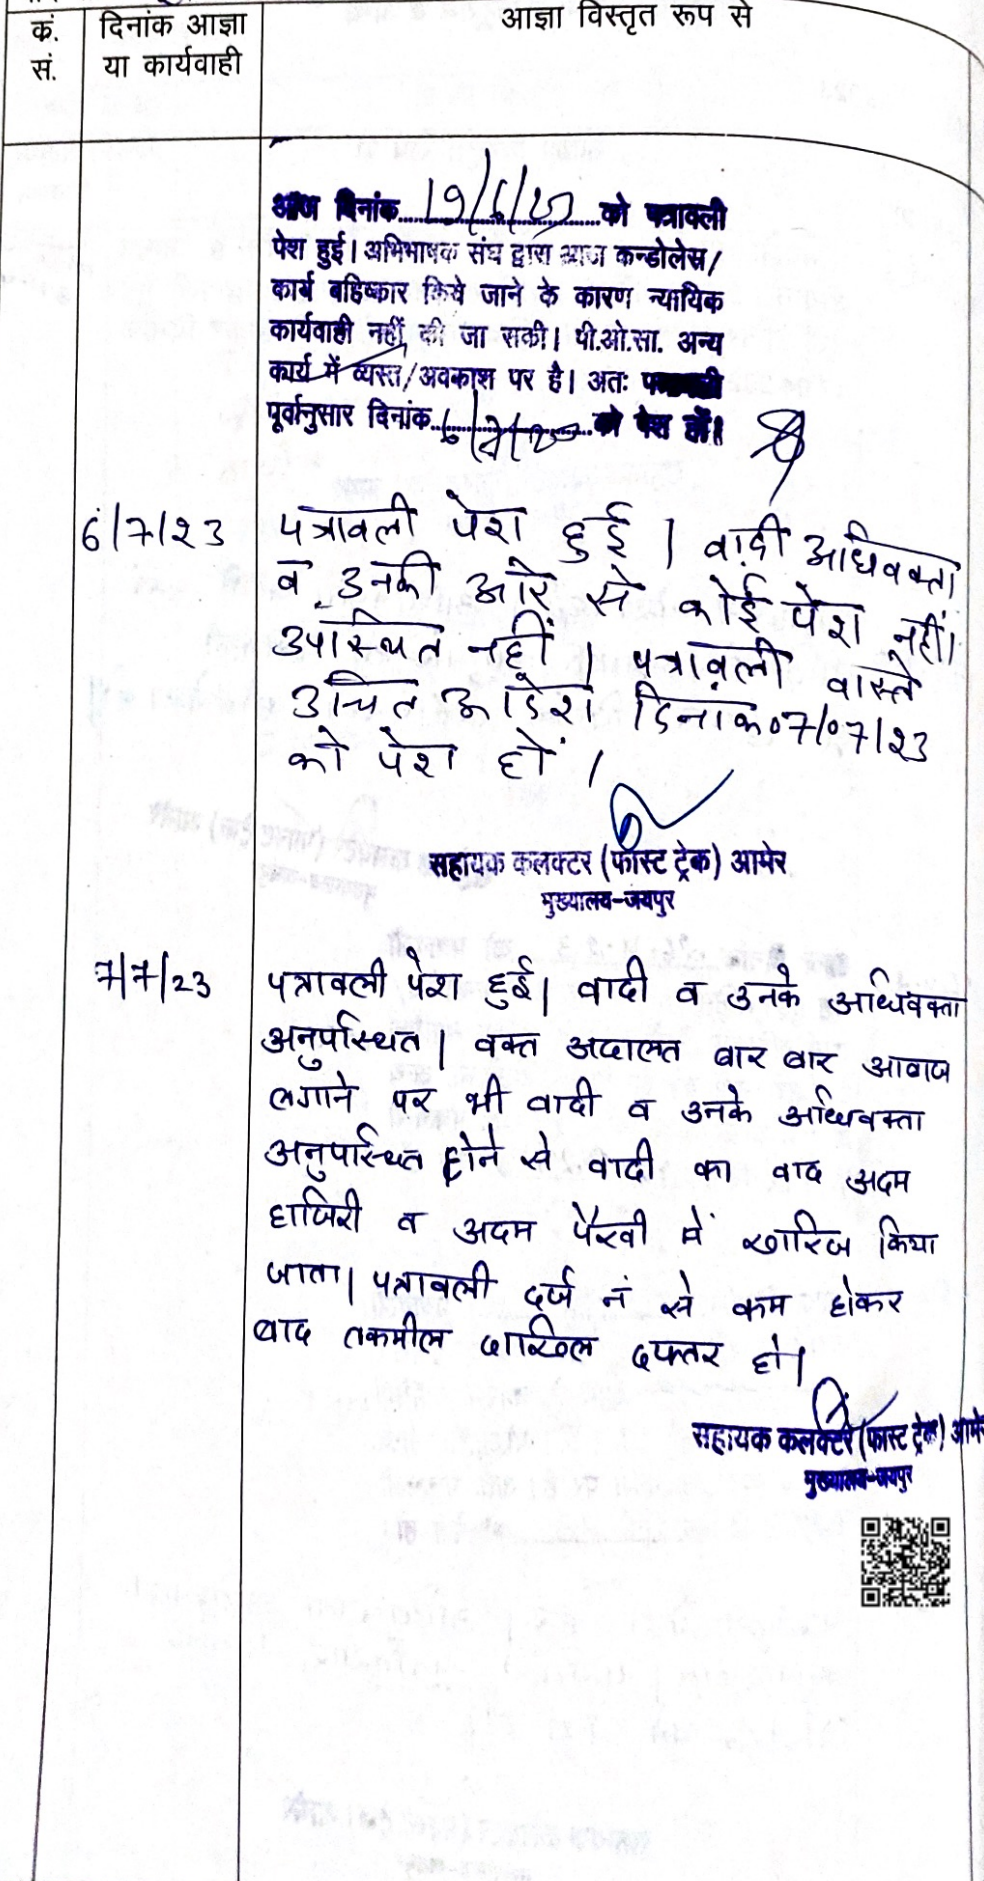 क्रं. दिनांक आज्ञा आज्ञा विस्तृत रूप से
सं. या कार्यवाही
आज दिनांक 19/6/23 को पत्रावली
पेश हुई। अभिभाषक संघ द्वारा आज कन्डोलेस/
कार्य बहिष्कार किये जाने के कारण न्यायिक
कार्यवाही नहीं की जा सकी। पी.ओ.सा. अन्य
कार्य में व्यस्त/अवकाश पर है। अतः पत्रावली
पूर्वानुसार दिनांक 6/7/23 को पेश हों।
6/7/23 पत्रावली पेश हुई। वादी अधिवक्ता
व उनकी ओर से कोई पेश नहीं।
उपस्थित नहीं। पत्रावली वास्ते
उचित आदेश दिनांक 07/07/23
को पेश हों।
सहायक कलक्टर (फास्ट ट्रेक) आमेर
मुख्यालय-जयपुर
7/7/23 पत्रावली पेश हुई। वादी व उनके अधिवक्ता
अनुपस्थित। वक्त अदालत बार बार आवाज
लगाने पर भी वादी व उनके अधिवक्ता
अनुपस्थित होने से वादी का वाद अदम
हाजिरी व अदम पैरवी में खारिज किया
जाता। पत्रावली दर्ज नं से कम होकर
बाद तकमील दाखिल दफ्तर हो।
सहायक कलक्टर (फास्ट ट्रेक) आमे
मुख्यालय-जयपुर